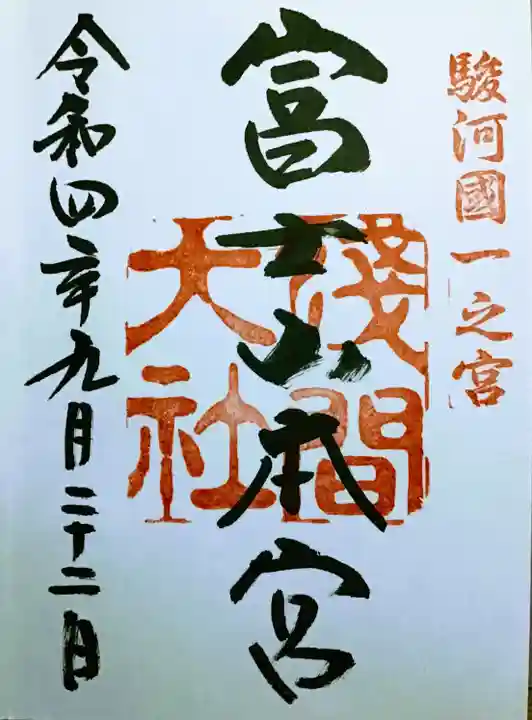 駿河國一之宮
富士山本宮
淺間
大社
令和四年九月二十二日